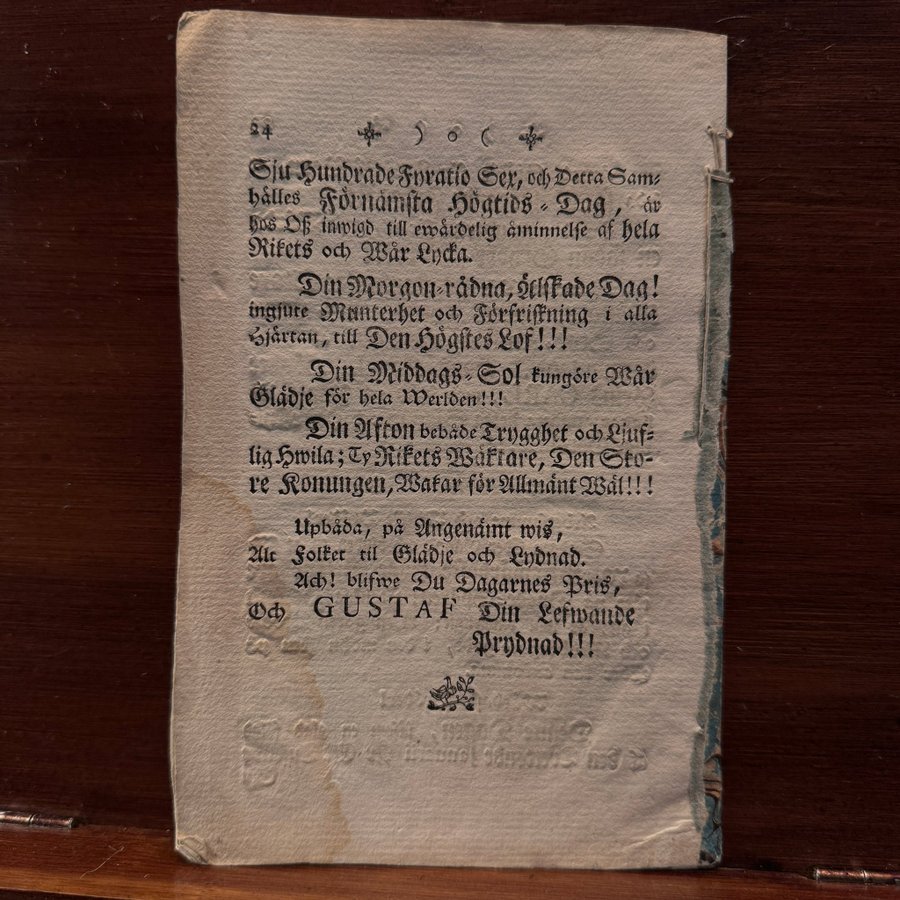 24 ) o (
Sju Hundrade Fyratio Sex, och Detta Sam-
hälles Förnämsta Högtids-Dag, är
hos Oß inwigd till ewärdelig åminnelse af hela
Rikets och Wår Lycka.
Din Morgon-rådna, Älskade Dag!
ingjute Munterhet och Förfriskning i alla
Hjärtan, till Den Högstes Lof!!!
Din Middags-Sol kungöre Wår
Glädje för hela Werlden!!!
Din Afton bebåde Trygghet och Ljuf-
lig Hwila; Ty Rikets Wäktare, Den Sto-
re Konungen, Wakar för Allmänt Wäl!!!
Upbåda, på Angenämt wis,
Alt Folket til Glädje och Lydnad.
Ach! blifwe Du Dagarnes Pris,
Och GUSTAF Din Lefwande
Prydnad!!!